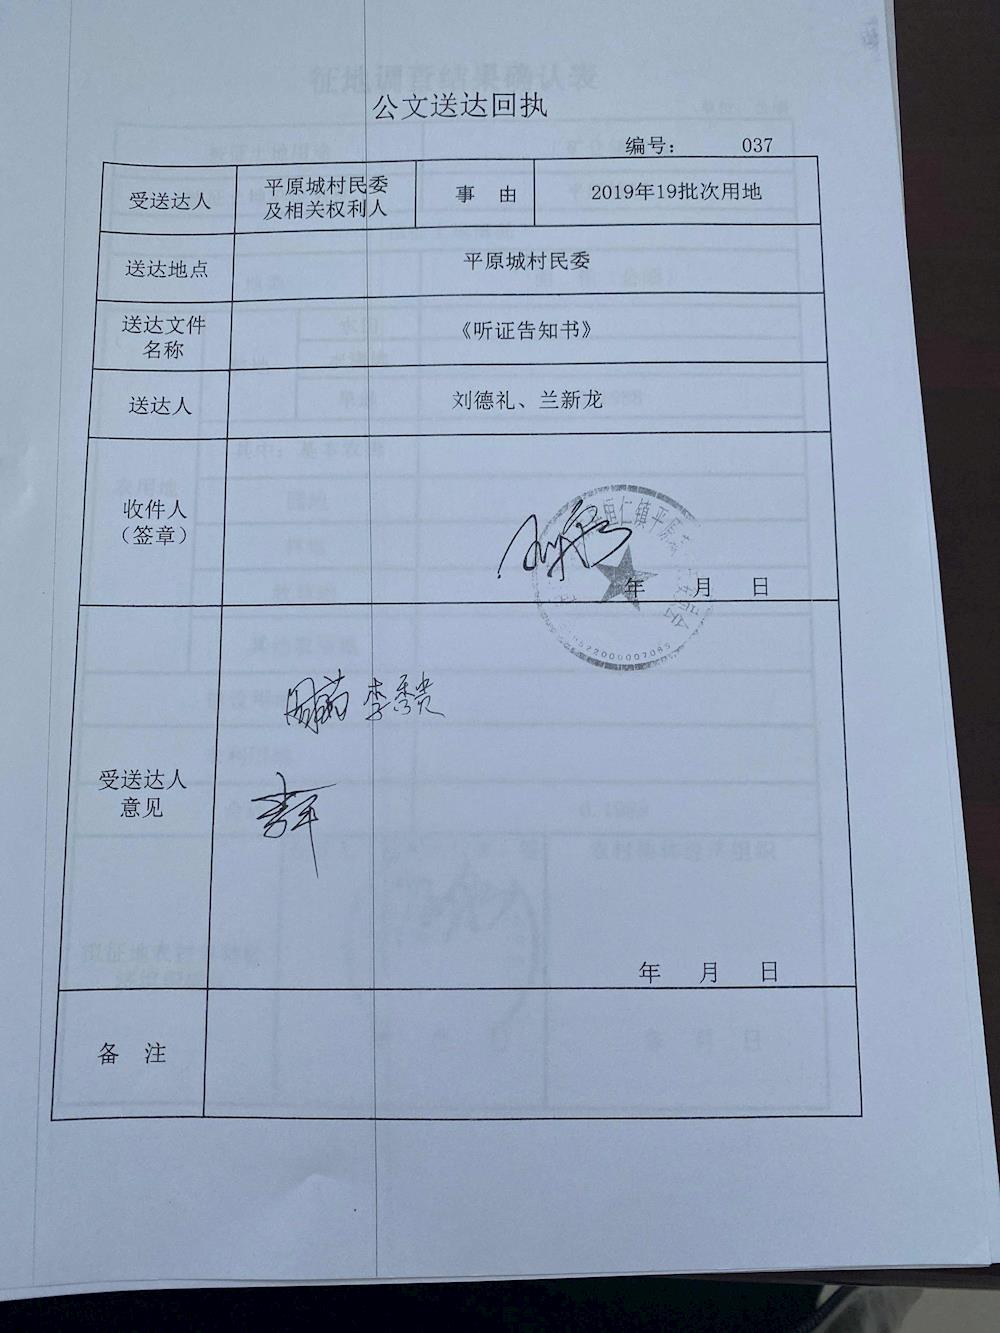 公文送达回执
编号： 037
受送达人
平原城村民委
及相关权利人
事 由
2019年19批次用地
送达地点
平原城村民委
送达文件
名称
《听证告知书》
送达人
刘德礼、兰新龙
收件人
（签章）
年 月 日
受送达人
意见
李秀贵
年 月 日
备 注